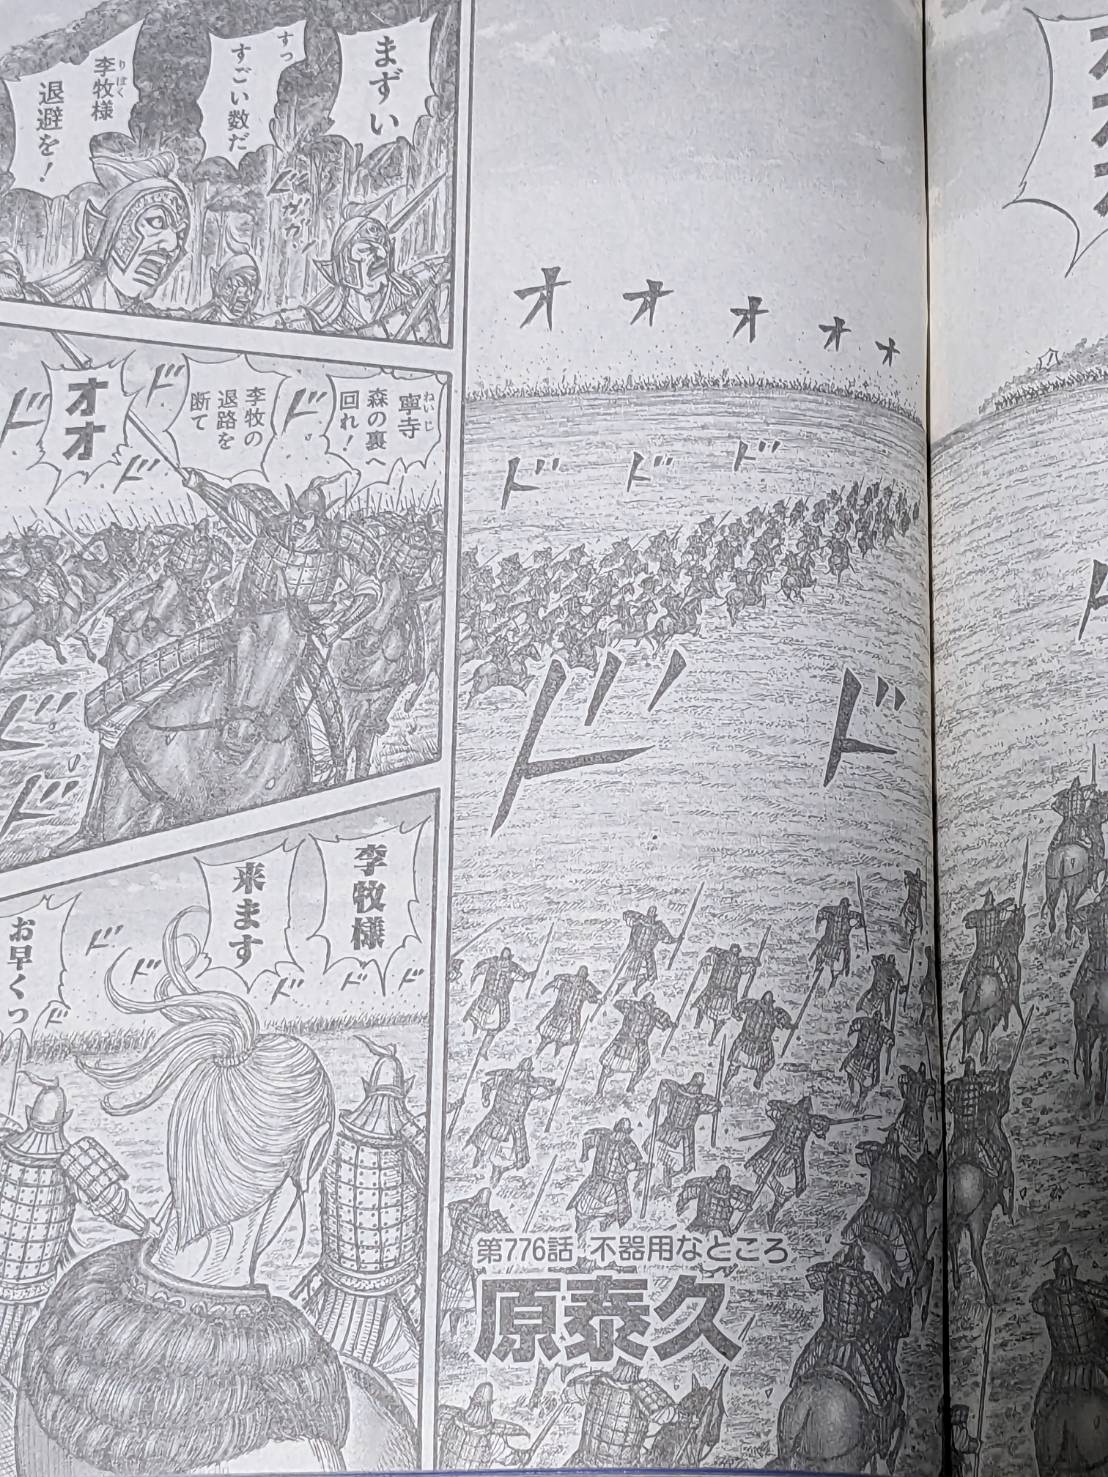 オオオオオ
ド
ド
ド
ド
ド
ド
第776話 不器用なところ
原泰久
まずい
すっ
すごい数だ
李牧様
りぼく
退避を!
寧寺
ねいじ
森の裏へ
回れ!
李牧の
退路を
断て
オオ
ド
ド
ド
ド
ド
ド
李牧様
来ます
お早くっ
ド
ド
ド
ド
ド
ド